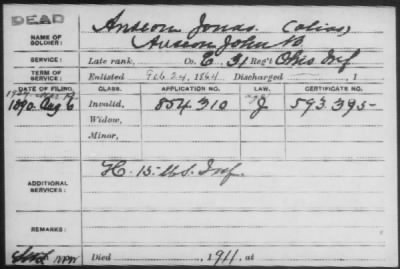 DEAD
NAME OF SOLDIER: Anseon Jonas. (alias)
John
SERVICE: Late rank, Co. E. 31 Reg't Ohio Inf
TERM OF SERVICE: Enlisted Feb 24, 1864 Discharged , 1
DATE OF FILING. CLASS. APPLICATION NO. LAW. CERTIFICATE NO.
1890. Aug 6 Invalid, 854310 J 593395-
Widow,
Minor,
ADDITIONAL SERVICES: H. 15. U.S. Inf.
REMARKS:
Died , 1911, at